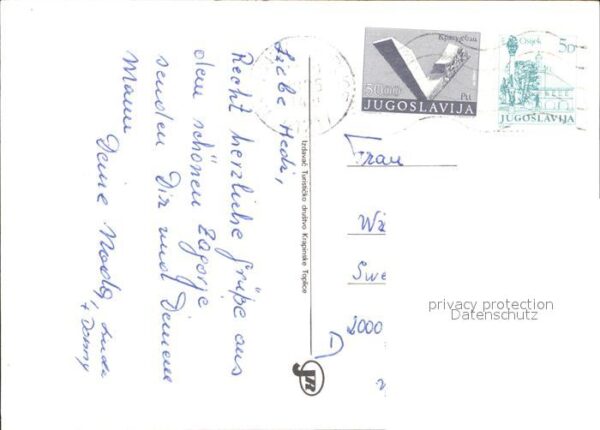 Liebe Hedi,
Recht herzliche Grüße aus
dem schönen Zagorje
senden Dir und Deinem
Mann
Deine Nada,
+ Danny
Izdavač Turističko društvo Krapinske Toplice
Крагујевац
5000 Pu
JUGOSLAVIJA
Osijek 50
JUGOSLAVIJA
Frau
Wi
Swe
2000
D
privacy protection
Datenschutz